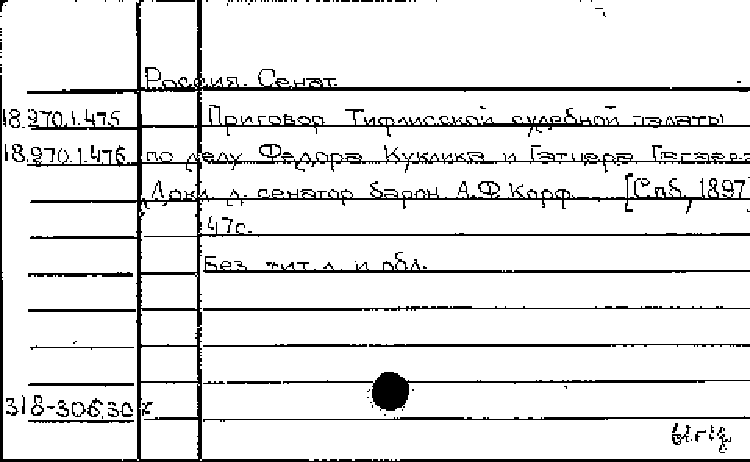 Россия. Сенат.
18.970.1.475 Приговор Тифлисской судебной палаты
18.970.1.476 по делу Федора Куклика и
Докл. д. сенатор барон А.Ф Корф. [Спб, 1897]
47с.
Без тит. л. и обл.